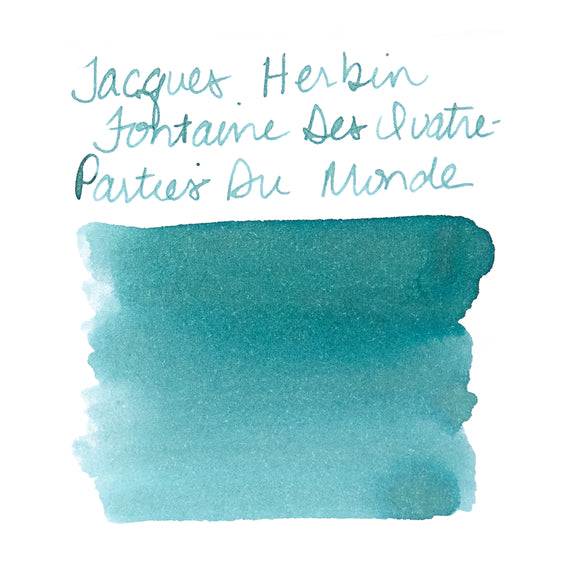 Jacques Herbin
Fontaine Des Quatre-
Parties Du Monde